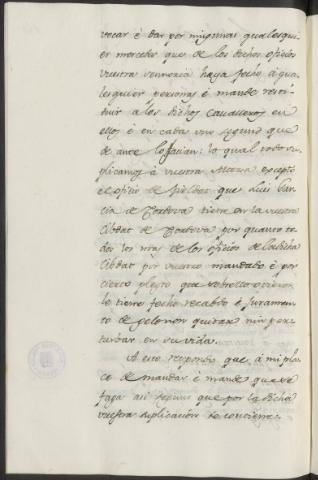 vocar é dar por ningunas qualesqui-
er mercedes que de los dichos oficios
vuestra Sennoria haya fecho á qua-
lesquier personas é mande resti-
tuir a los dichos Cavalleros en
ellos é en cada uno segund que
de ante lo facian: lo qual todo su-
plicamos á vuestra Alteza excepto
el oficio de fieldat que Luis Gar-
cia de Cordova tiene en la vuestra
Cibdat de Cordova por quanto to-
dos los mas de los oficios de la dicha
Cibdat por vuestro mandado é por
cierto pleyto que sobrello ovieron
le tienen fecho recabdo é Juramen-
to de gelo non quitar nin per-
turbar en su vida.
A esto respondo que á mi pla-
ce de mandar é mande que se
faga asi segund que por la dicha
vuestra suplicacion se contiene.